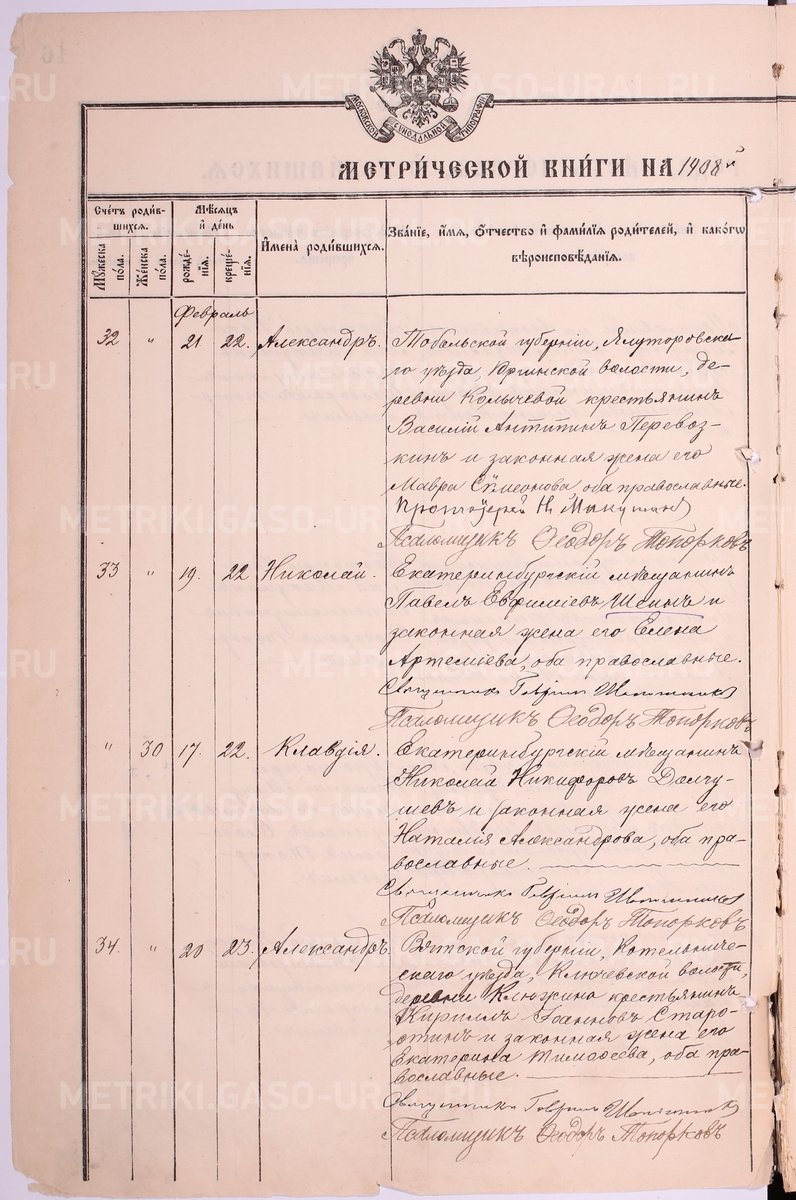 МОСКОВСКОЙ СѴНОДАЛЬНОЙ ТИПОГРАФІИ
МЕТРИ́ЧЕСКОЙ КНИ́ГИ НА 1908 й
Сче́тъ роди́вшихсѧ.
Му́жеска по́ла.
Же́нска по́ла.
Мѣ́сѧцъ и҆ де́нь
рожде́нїѧ.
креще́нїѧ.
И҆мена̀ роди́вшихсѧ.
Зва́нїе, и҆́мѧ, ѻ҆́тчество и҆ фами́лїѧ роди́телей, и҆ како́гѡ
вѣроисповѣ́данїѧ.
Февраль
32 " 21 22. Александръ. Тобольской губерніи, Ялуторовска-
го уѣзда, Юргинской волости, де-
ревни Колычевой крестьянинъ
Василій Антипинъ Перевоз-
кинъ и законная жена его
Мавра Сѵмеонова, оба православные.
Протоіерей Н.
Псаломщикъ Ѳеодоръ Топорковъ
33 " 19. 22 Николай. Екатеринбургскій мѣщанинъ
Павелъ Евфиміевъ Шеинъ и
законная жена его Елена
Артеміева, оба православные.
Священникъ Гавріилъ
Псаломщикъ Ѳеодоръ Топорковъ
" 30 17. 22. Клавдія. Екатеринбургскій мѣщанинъ
Николай Никифоровъ Долгу-
шевъ и законная жена его
Наталія Александрова, оба пра-
вославные.
Священникъ Гавріилъ
Псаломщикъ Ѳеодоръ Топорковъ
34 " 20 23. Александръ. Вятской губерніи, Котельниче-
скаго уѣзда, Ключевской волости,
деревни Клюжино крестьянинъ
Кириллъ Іоанновъ Старо-
стинъ и законная жена его
Екатерина Тимоѳеева, оба пра-
вославные.
Священникъ Гавріилъ
Псаломщикъ Ѳеодоръ Топорковъ
METRIKI.GASO-URAL.RU